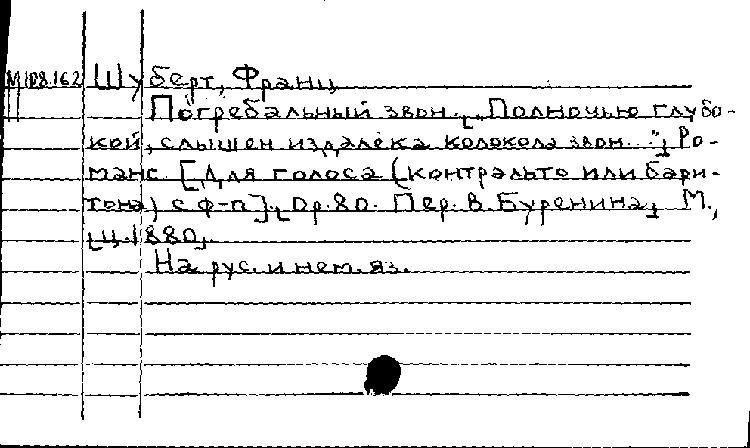 М 108.162 Шуберт, Франц
Погребальный звон. [„Полночью глубо-
кой, слышен издалека колокола звон..."] Ро-
манс [Для голоса (контральто или бари-
тона) с ф-п]. [Op. 80. Пер. В. Буренина] М.,
[ц. 1880].
На рус. и нем. яз.